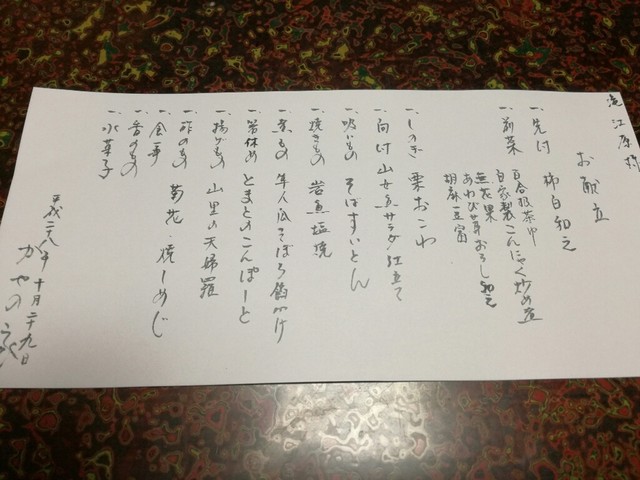 お献立
一、先付 柿白和え
一、前菜 百合根茶巾
自家製こんにゃく炒め煮
無花果
あわび茸おろし和え
胡麻豆富
一、しのぎ 栗おこわ
一、向付 山女魚サラダ仕立て
一、吸いもの そばすいとん
一、焼きもの 岩魚塩焼
一、煮もの 隼人瓜そぼろ餡かけ
一、箸休め とまとのこんぽーと
一、揚げもの 山里の天婦羅
一、酢のもの 菊花 焼しめじ
一、食事
一、香のもの
一、水菓子
平成二十八年 十月二十九日